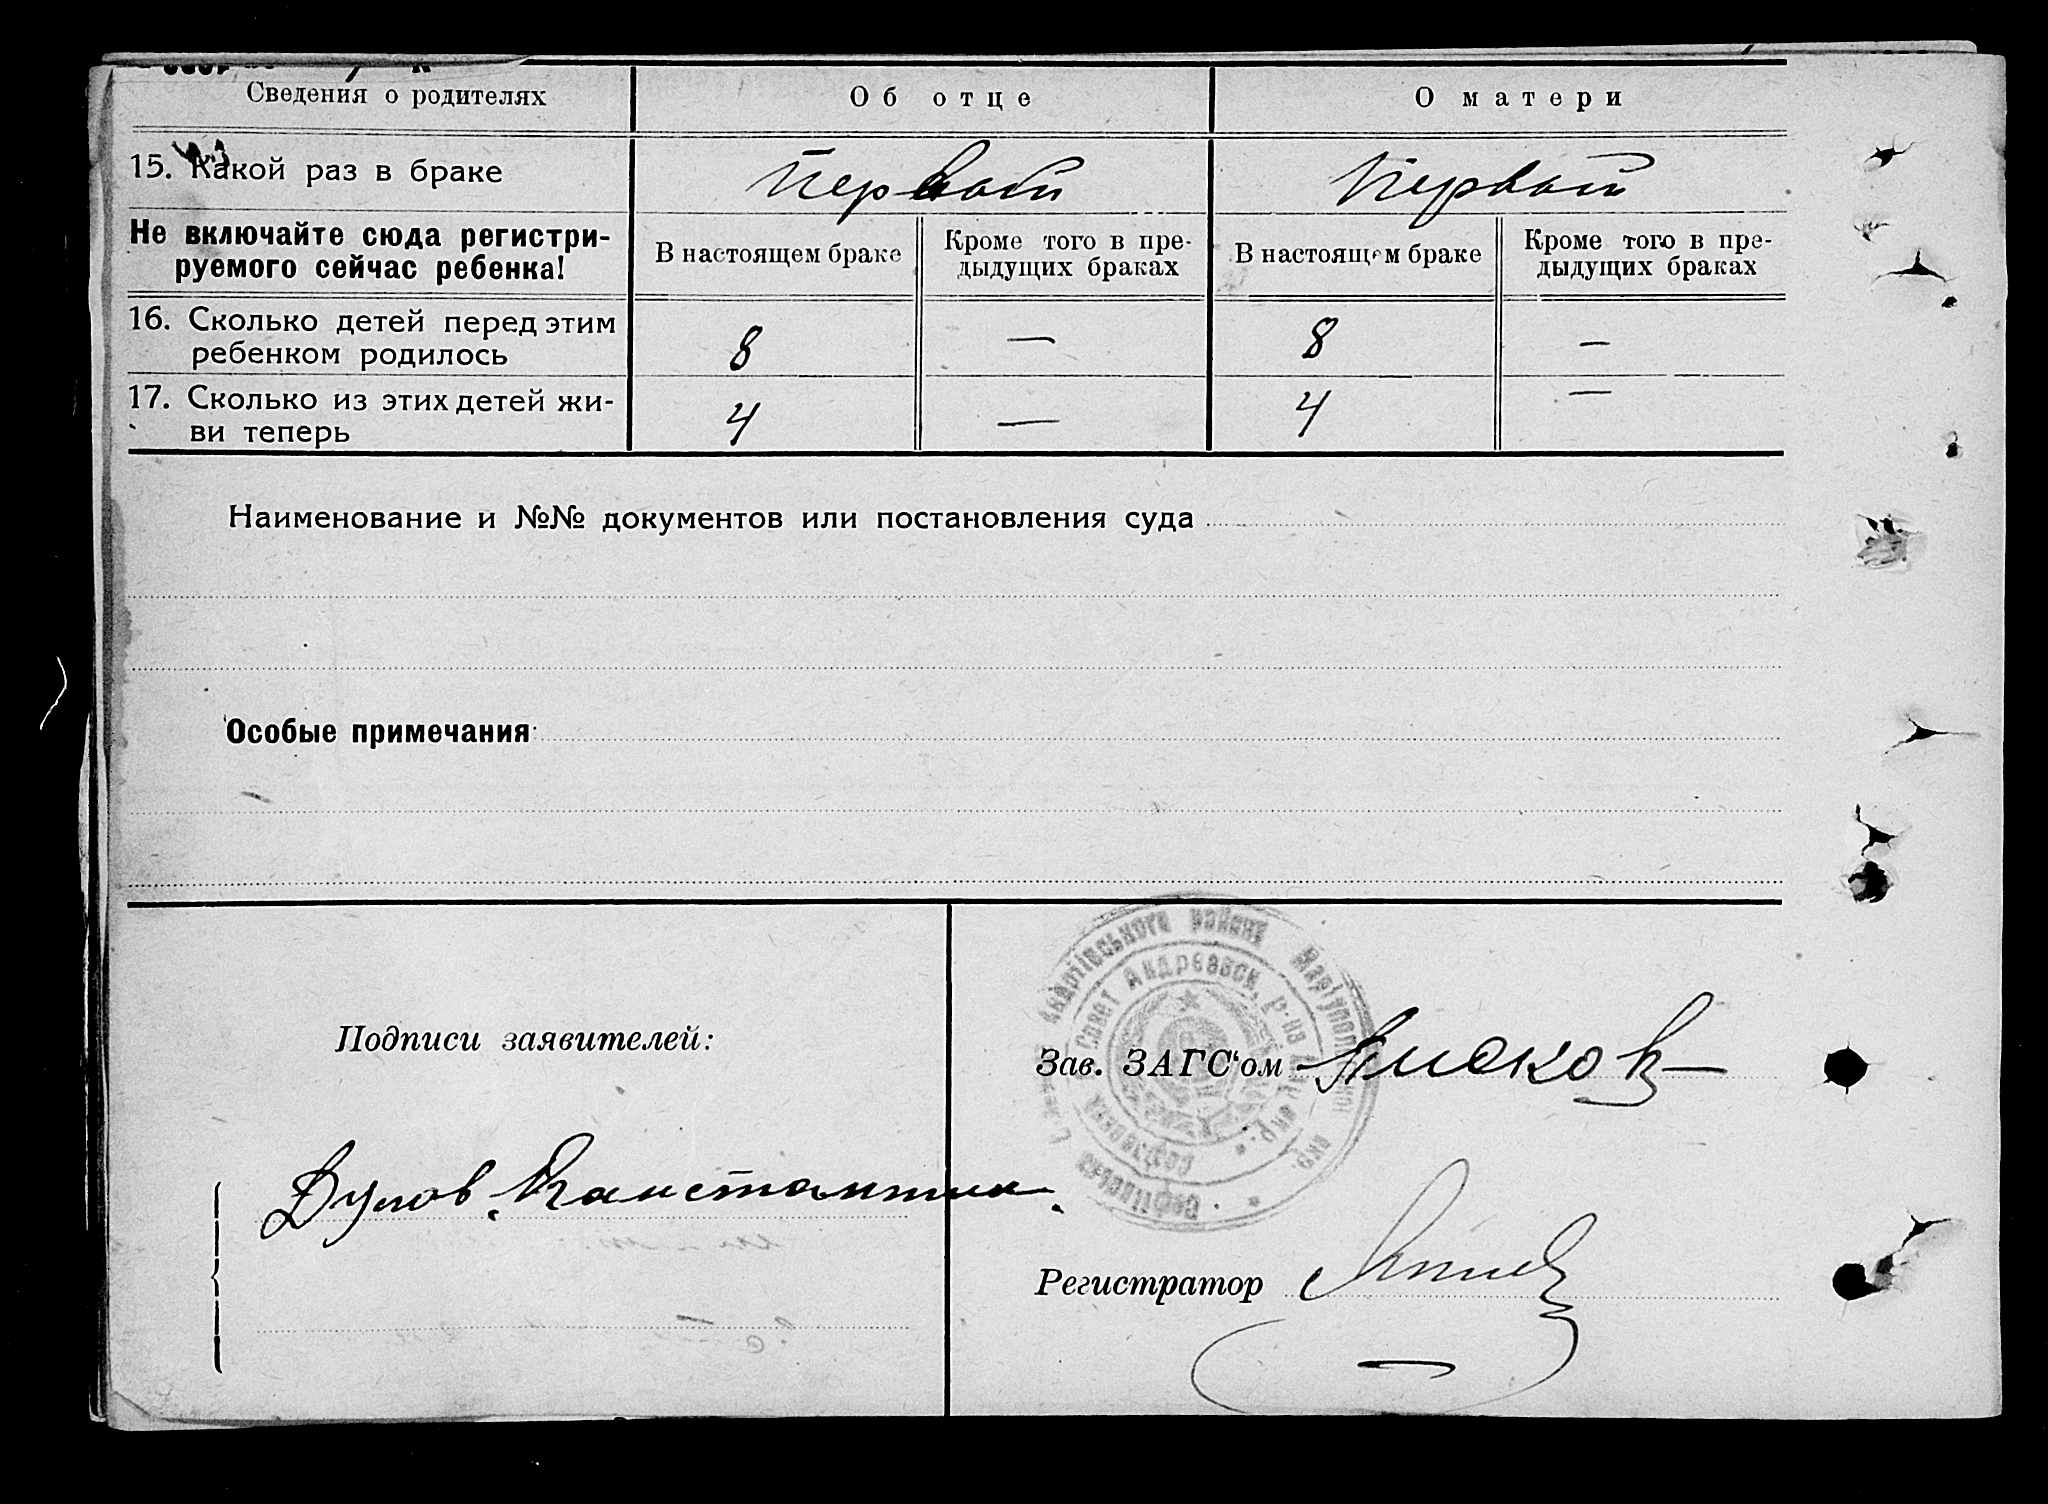 Сведения о родителях
Об отце
О матери
15. Какой раз в браке
Первый
Первый
Не включайте сюда регистри-
руемого сейчас ребенка!
В настоящем браке
Кроме того в пре-
дыдущих браках
В настоящем браке
Кроме того в пре-
дыдущих браках
16. Сколько детей перед этим
ребенком родилось
8
—
8
—
17. Сколько из этих детей жи-
ви теперь
4
—
4
—
Наименование и №№ документов или постановления суда
Особые примечания
Андріївського району Маріупольської окр.
Совет Андреевск. р-на окр.
Подписи заявителей:
Зав. ЗАГС'ом
Дулов Константин.
Регистратор